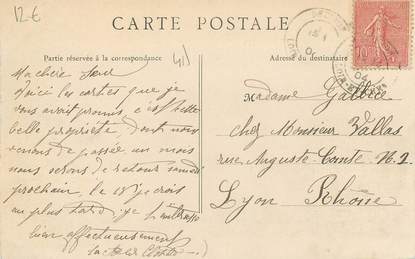 12€
CARTE POSTALE
Partie réservée à la correspondance
Adresse du destinataire
10
04
Ma chère
Voici les cartes que je
vous avait promis, c'est cette
belle propriété, dont nous
venons de passée un mois
nous serons de retour samedi
prochain, le 18 je crois
au plus tard, je
bien affectueusement
Madame
chez Monsieur Vallas
rue Auguste-Comte N. 2
Lyon Rhône